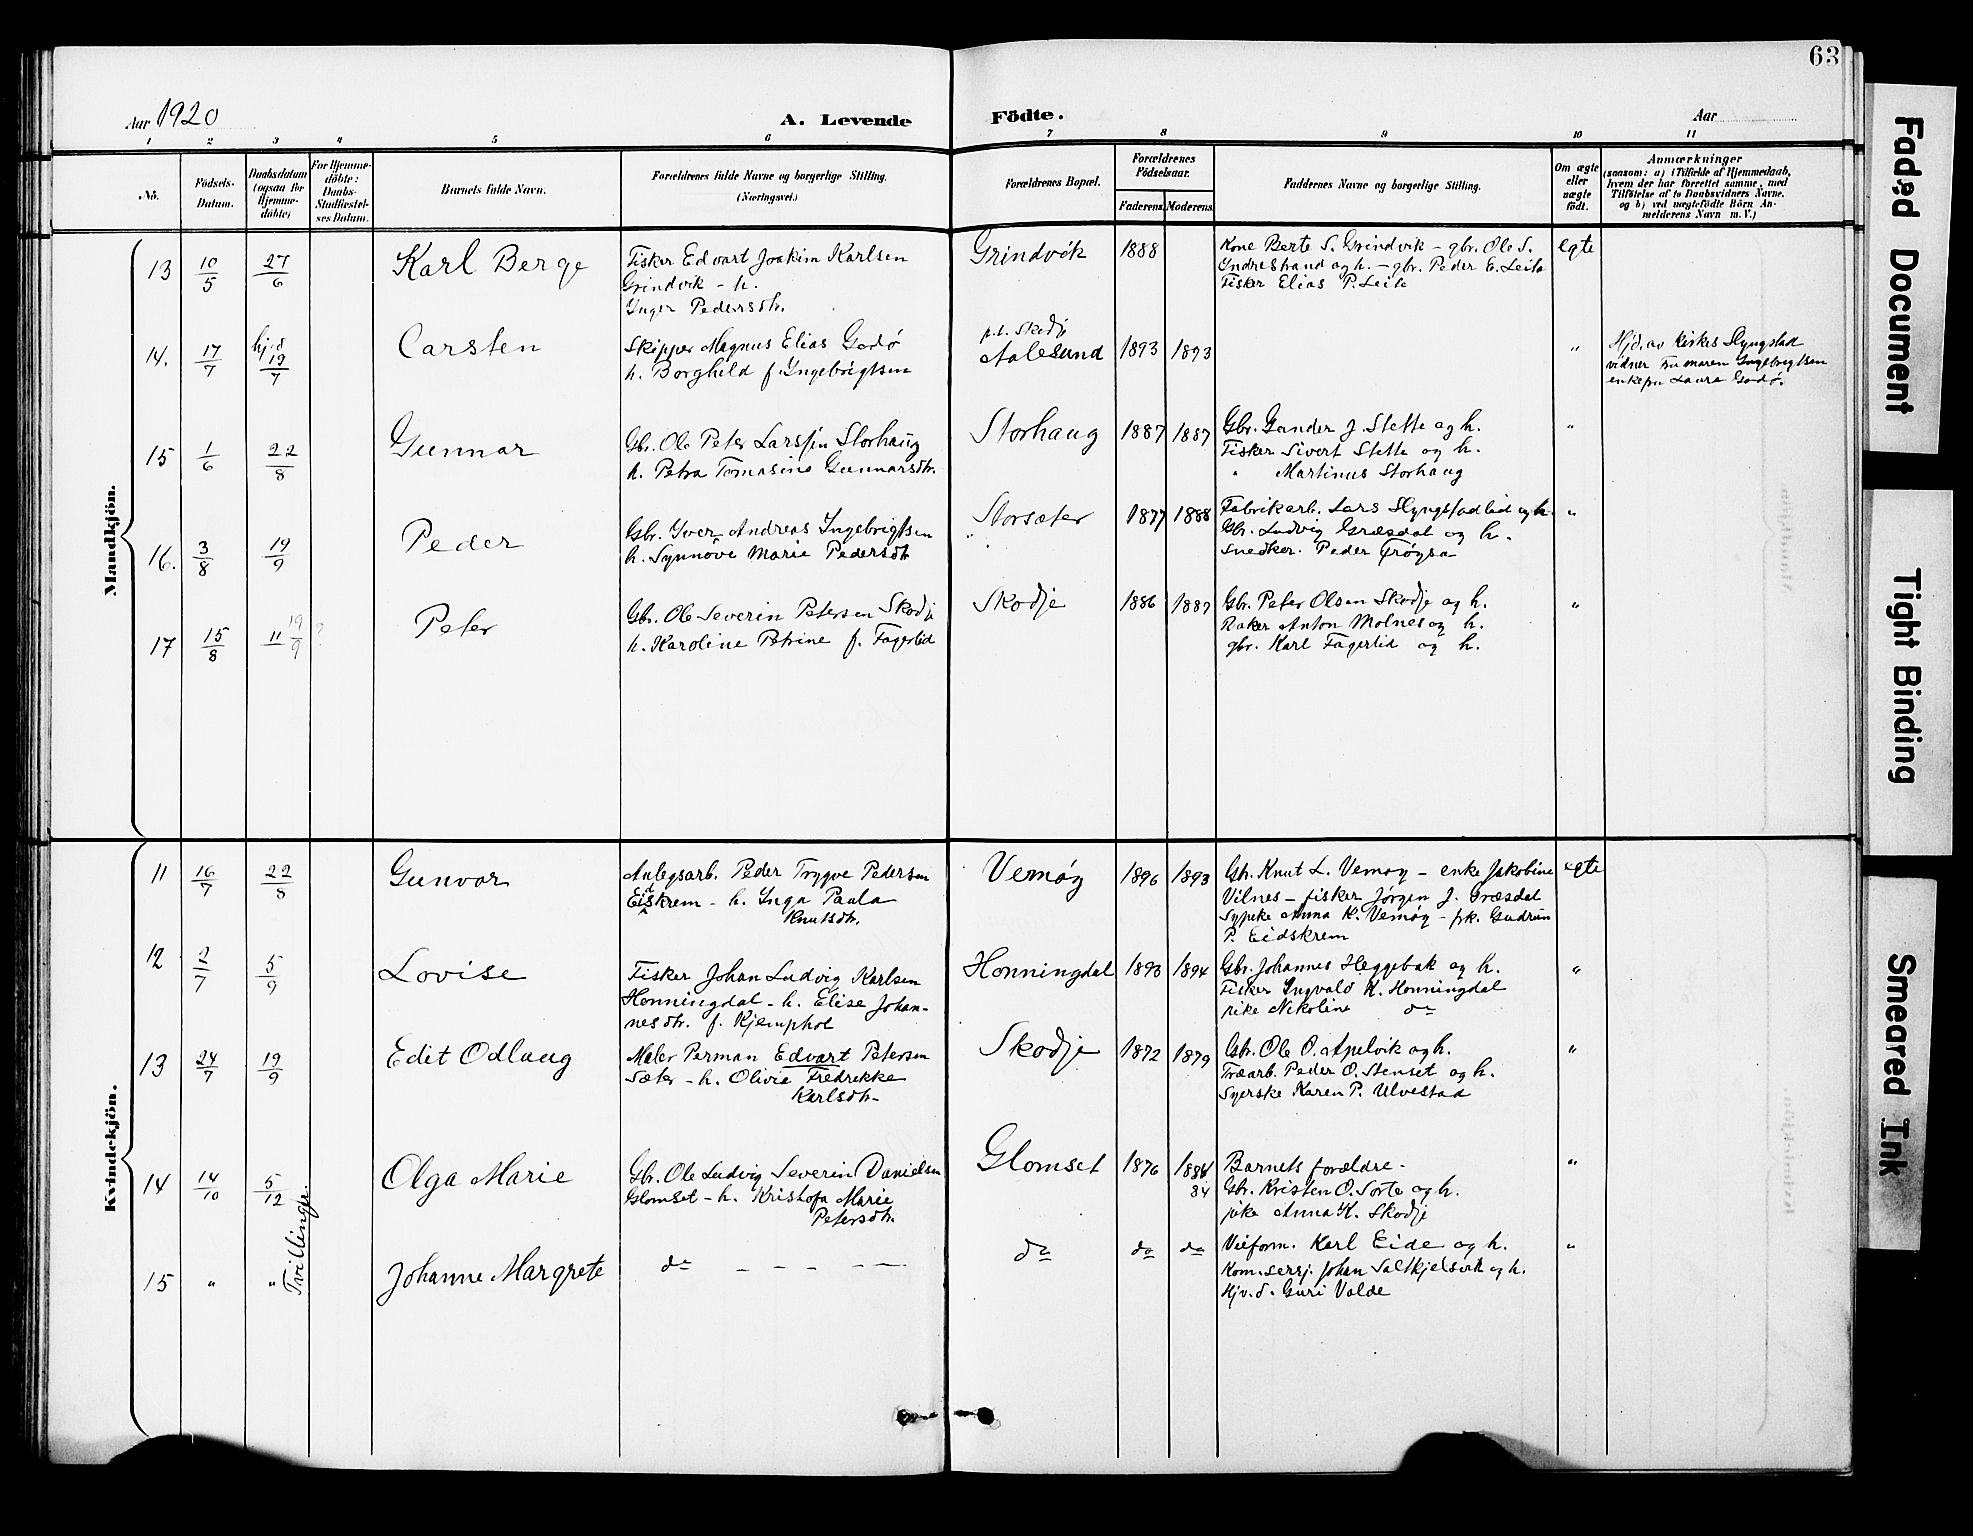 63
Aar 1920
A. Levende Födte.
Aar
1 2 3 4 5 6 7 8 9 10 11
No.
Födsels-Datum.
Daabsdatum (ogsaa for Hjemme-döbte)
For Hjemme-döbte: Daabs-Stadfæstel-ses Datum.
Barnets fulde Navn.
Forældrenes fulde Navne og borgerlige Stilling. (Næringsvei.)
Forældrenes Bopæl.
Forældrenes Födselsaar.
Faderens Moderens
Faddernes Navne og borgerlige Stilling.
Om ægte eller uægte födt.
Anmærkninger
(saasom: a) i Tilfælde af Hjemmedaab,
hvem der har forrettet samme, med
Tilföielse af to Daabsvidners Navne,
og b) ved uægtefödte Börn An-
melderens Navn m. V.)
Mandkjön.
13 10/5 27/6 Karl Berge
Fisker Edvart Joakim Karlsen
Grindvik - h.
Inger Pedersdtr.
Grindvik 1888
Kone Berte S. Grindvik - gbr. Ole S.
Indrestrand og h. - gbr. Peder E. Leite
Fisker Elias P. Leite
egte
14. 17/7 hj.d 19/7 Carsten
Skipper Magnus Elias Godø
h. Borghild f. Ingebrigtsen
p.t. Skodje
Aalesund 1893 1893
"
Hjd. av kirkes. Slyngstad
vidner Fru maren Ingebrigtsen
enkefru Laura Godø.
15 1/6 22/8 Gunnar
Gbr. Ole Peter Larssen Storhaug
h. Petra Tomasine Gunnarsdtr.
Storhaug 1887 1887
Gbr. Gunder J. Stette og h.
Fisker Sivert Stette og h.
" Martinus Storhaug
"
16. 3/8 19/9 Peder
Gbr. Iver Andreas Ingebrigtsen
h. Synnøve Marie Pedersdtr
Storsæter 1877 1888
Fabrikarb. Lars Slyngstadlid og h.
Gbr. Ludvig Græsdal og h.
Snedker. Peder Frøysa
"
17 15/8 11 19/9 ? Peter
Gbr. Ole Severin Petersen Skodje
h. Karoline Petrine f. Fagerlid
Skodje 1886 1887
Gbr. Peter Olsen Skodje og h.
Baker Anton Molnes og h.
gbr. Karl Fagerlid og h.
"
Kvindekjön.
11 16/7 22/8 Gunvor
Anlegsarb. Peder Trygve Pedersen
Eidskrem - h. Inga Paula
Knutsdtr.
Vemøy 1896 1893
Gbr. Knut L. Vemøy - enke Jakobine
Vilnes - fisker Jørgen J. Græsdal
Sypike Anna K. Vemøy - pk. Gudrun
P. Eidskrem
egte
12 2/7 5/9 Lovise
Fisker Johan Ludvig Karlsen
Honningdal - h. Elise Johan-
nesdtr. f. Kjemphol
Honningdal 1893 1894
Gbr. Johannes Heggebak og h.
Fisker Ingvald K. Honningdal
pike Nikoline do
"
13 24/7 19/9 Edit Odlaug
Maler Perman Edvart Petersen
Sæter - h. Olivia Fredrekke
Karlsdtr.
Skodje 1872 1879
Gbr. Ole O. Apelvik og h.
Træarb. Peder O. Stenset og h.
Syerske Karen P. Ulvestad
"
14 14/10 5/12 Olga Marie
Gbr. Ole Ludvig Severin Danielsen
Glomset - h. Kristofa Marie
Petersdtr.
Glomset 1876 1884
84
Barnets forældre.
Gbr. Kristen O. Sorte og h.
pike Anna K. Skodje
"
Tvillinger.
15 " " Johanne Margrete
do - - - - -
do do do
Veiform. Karl Eide og h.
Kom.sersj. Johan Saltkjelsvik og h.
Hjv.d. Guri Valde
"
Faded Document
Tight Binding
Smeared Ink